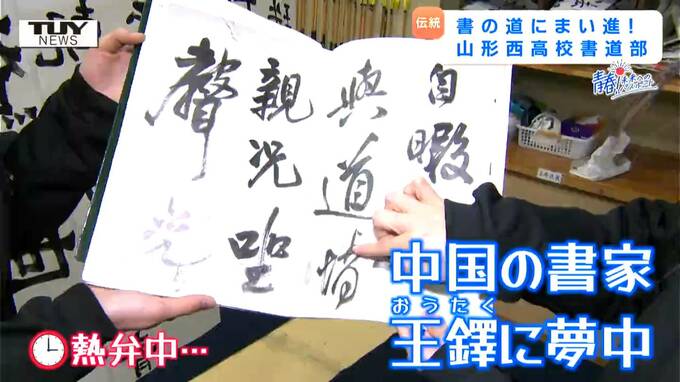 TUY
NEWS
伝統
書の道にまい進!
山形西高校書道部
青春!
自暇
與道情
親況
聲
中国の書家
おうたく
王鐸に夢中
熱弁中…